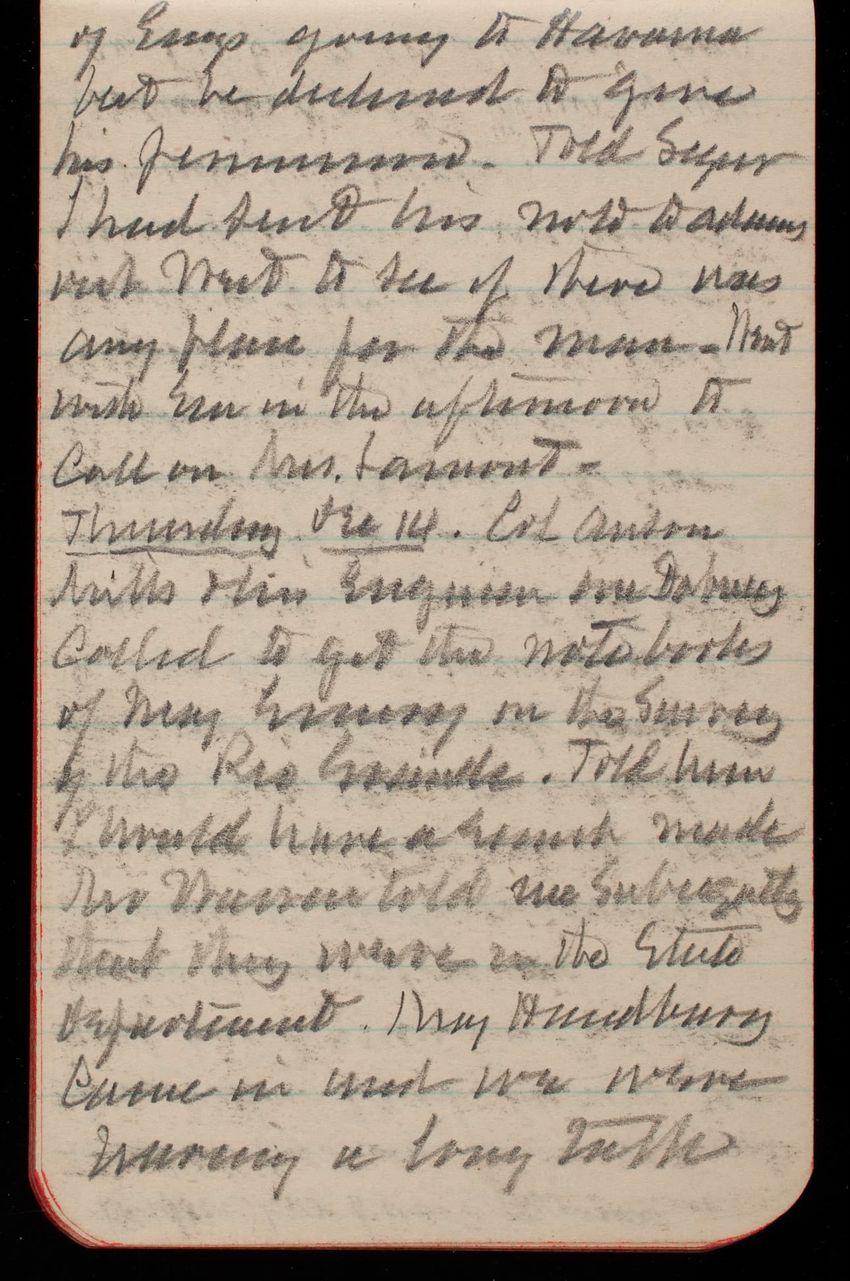 of Engs going to Havana
but he declined to give
his permission. Told
I had sent his note to Adams
and Went to see if there was
any place for the man - Went
with Em in the afternoon to
Call on Mrs. Lamont -
Thursday Dec 14. Col Anson
Mills & his Engineer one Dabney
Called to get the note books
of Maj Emory on the Survey
of the Rio Grande. Told him
I would have a search made
told me subsequently
that they were in the State
Department. Maj Handbury
Came in and we were
having a long talk